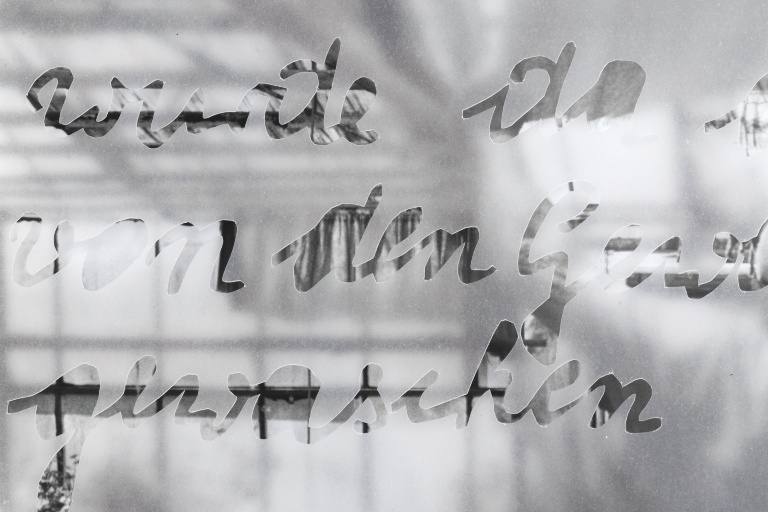 wurde de
von den Gew
gewaschen